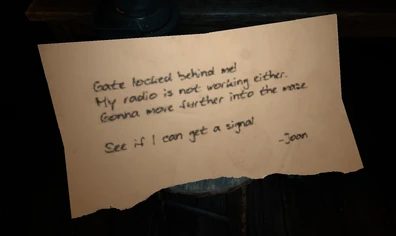 Gate locked behind me!
My radio is not working either.
Gonna move further into the maze
See if I can get a signal
-Joan